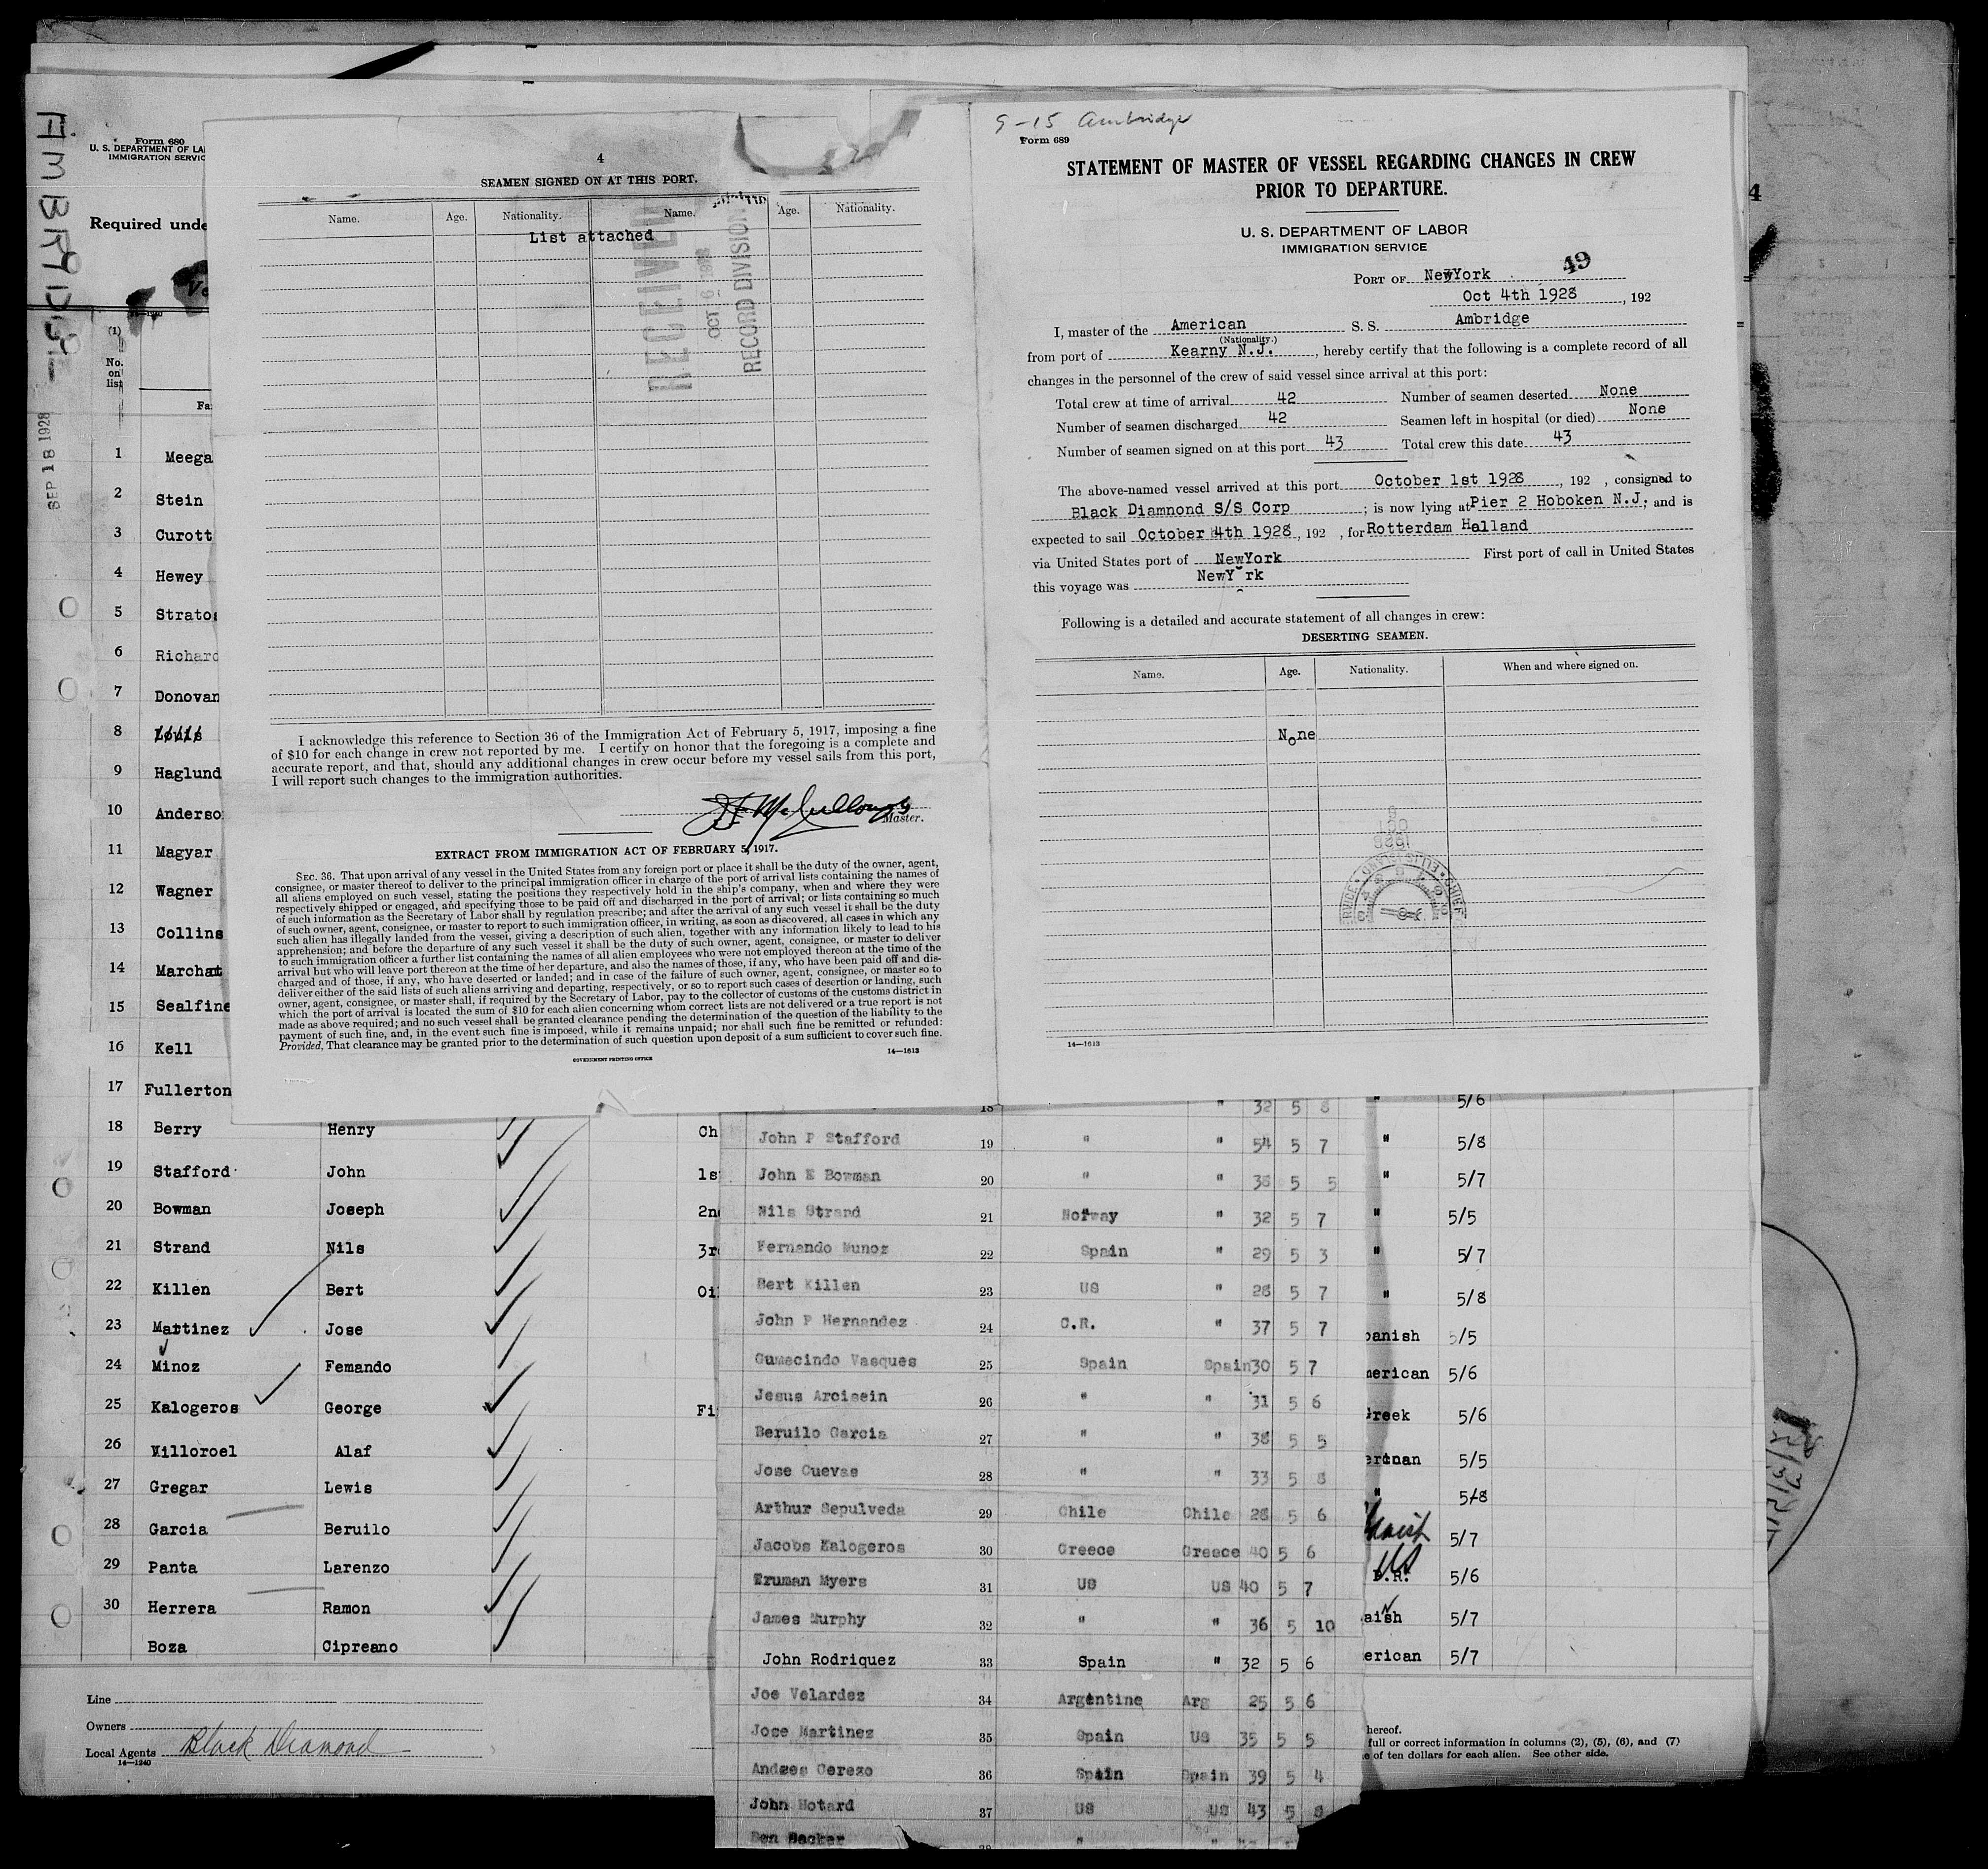 AMBRIDGE
SEP 18 1928
Form 680
U. S. DEPARTMENT OF LA
IMMIGRATION SERVIC
Required unde
(1)
No.
on
list
Fa
1 Meega
2 Stein
3 Curott
4 Hewey
5 Strato
6 Richard
7 Donovan
8 Louis
9 Haglund
10 Anderso
11 Magyar
12 Wagner
13 Collins
14 Marchat
15 Sealfine
16 Kell
17 Fullerton
18 Berry Henry Ch
19 Stafford John 1s
20 Bowman Joseph 2n
21 Strand Nils 3r
22 Killen Bert Oi
23 Martinez Jose
24 Minoz Femando
25 Kalogeros George Fi
26 Villoroel Alaf
27 Gregar Lewis
28 Garcia Beruilo
29 Panta Larenzo
30 Herrera Ramon
Boza Cipreano
Line
Owners
Local Agents Black Diamond
14—1240
4
SEAMEN SIGNED ON AT THIS PORT.
Name. Age. Nationality. Name. Age. Nationality.
List attached
RECEIVED
OCT 6 1928
RECORD DIVISION
I acknowledge this reference to Section 36 of the Immigration Act of February 5, 1917, imposing a fine
of $10 for each change in crew not reported by me. I certify on honor that the foregoing is a complete and
accurate report, and that, should any additional changes in crew occur before my vessel sails from this port,
I will report such changes to the immigration authorities.
McCullough
Master.
EXTRACT FROM IMMIGRATION ACT OF FEBRUARY 5, 1917.
SEC. 36. That upon arrival of any vessel in the United States from any foreign port or place it shall be the duty of the owner, agent,
consignee, or master thereof to deliver to the principal immigration officer in charge of the port of arrival lists containing the names of
all aliens employed on such vessel, stating the positions they respectively hold in the ship's company, when and where they were
respectively shipped or engaged, and specifying those to be paid off and discharged in the port of arrival; or lists containing so much
of such information as the Secretary of Labor shall by regulation prescribe; and after the arrival of any such vessel it shall be the duty
of such owner, agent, consignee, or master to report to such immigration officer, in writing, as soon as discovered, all cases in which any
such alien has illegally landed from the vessel, giving a description of such alien, together with any information likely to lead to his
apprehension; and before the departure of any such vessel it shall be the duty of such owner, agent, consignee, or master to deliver
to such immigration officer a further list containing the names of all alien employees who were not employed thereon at the time of the
arrival but who will leave port thereon at the time of her departure, and also the names of those, if any, who have been paid off and dis-
charged and of those, if any, who have deserted or landed; and in case of the failure of such owner, agent, consignee, or master so to
deliver either of the said lists of such aliens arriving and departing, respectively, or so to report such cases of desertion or landing, such
owner, agent, consignee, or master shall, if required by the Secretary of Labor, pay to the collector of customs of the customs district in
which the port of arrival is located the sum of $10 for each alien concerning whom correct lists are not delivered or a true report is not
made as above required; and no such vessel shall be granted clearance pending the determination of the question of the liability to the
payment of such fine, and, in the event such fine is imposed, while it remains unpaid; nor shall such fine be remitted or refunded:
Provided, That clearance may be granted prior to the determination of such question upon deposit of a sum sufficient to cover such fine.
GOVERNMENT PRINTING OFFICE
14—1613
9-15 Ambridge
Form 689
STATEMENT OF MASTER OF VESSEL REGARDING CHANGES IN CREW
PRIOR TO DEPARTURE.
U. S. DEPARTMENT OF LABOR
IMMIGRATION SERVICE
49
PORT OF NewYork
Oct 4th 1928, 192
I, master of the American S. S. Ambridge
(Nationality.)
from port of Kearny N.J., hereby certify that the following is a complete record of all
changes in the personnel of the crew of said vessel since arrival at this port:
Total crew at time of arrival 42 Number of seamen deserted None
Number of seamen discharged 42 Seamen left in hospital (or died) None
Number of seamen signed on at this port 43 Total crew this date 43
The above-named vessel arrived at this port October 1st 1928, 192 , consigned to
Black Diamnond S/S Corp ; is now lying at Pier 2 Hoboken N.J. and is
expected to sail October 4th 1928, 192 , for Rotterdam Holland
via United States port of NewYork First port of call in United States
this voyage was NewY rk
Following is a detailed and accurate statement of all changes in crew:
DESERTING SEAMEN.
Name. Age. Nationality. When and where signed on.
None
14—1613
4
18 " 32 5 8
John P Stafford 19 " " 54 5 7
John E Bowman 20 " " 38 5 5
Nils Strand 21 Norway " 32 5 7
Fernando Munoz 22 Spain " 29 5 3
Bert Killen 23 US " 28 5 7
John P Hernandez 24 C.R. " 37 5 7
Gumecindo Vasques 25 Spain Spain 30 5 7
Jesus Arcisein 26 " " 31 5 6
Beruilo Garcia 27 " " 38 5 5
Jose Cuevas 28 " " 33 5 8
Arthur Sepulveda 29 Chile Chile 28 5 6
Jacobs Kalogeros 30 Greece Greece 40 5 6
Truman Myers 31 US US 40 5 7
James Murphy 32 " " 36 5 10
John Rodriquez 33 Spain " 32 5 6
Joe Velardez 34 Argentine Arg 25 5 6
Jose Martinez 35 Spain US 35 5 5
Andres Cerezo 36 Spain Spain 39 5 4
John Hotard 37 US US 43 5 8
Ben Backer " "
" 5/6
" 5/8
" 5/7
" 5/5
" 5/7
" 5/8
panish 5/5
merican 5/6
Greek 5/6
erman 5/5
" 5/8
5/7
US
P.R. 5/6
5/7
erican 5/7
hereof.
full or correct information in columns (2), (5), (6), and (7)
e of ten dollars for each alien. See other side.